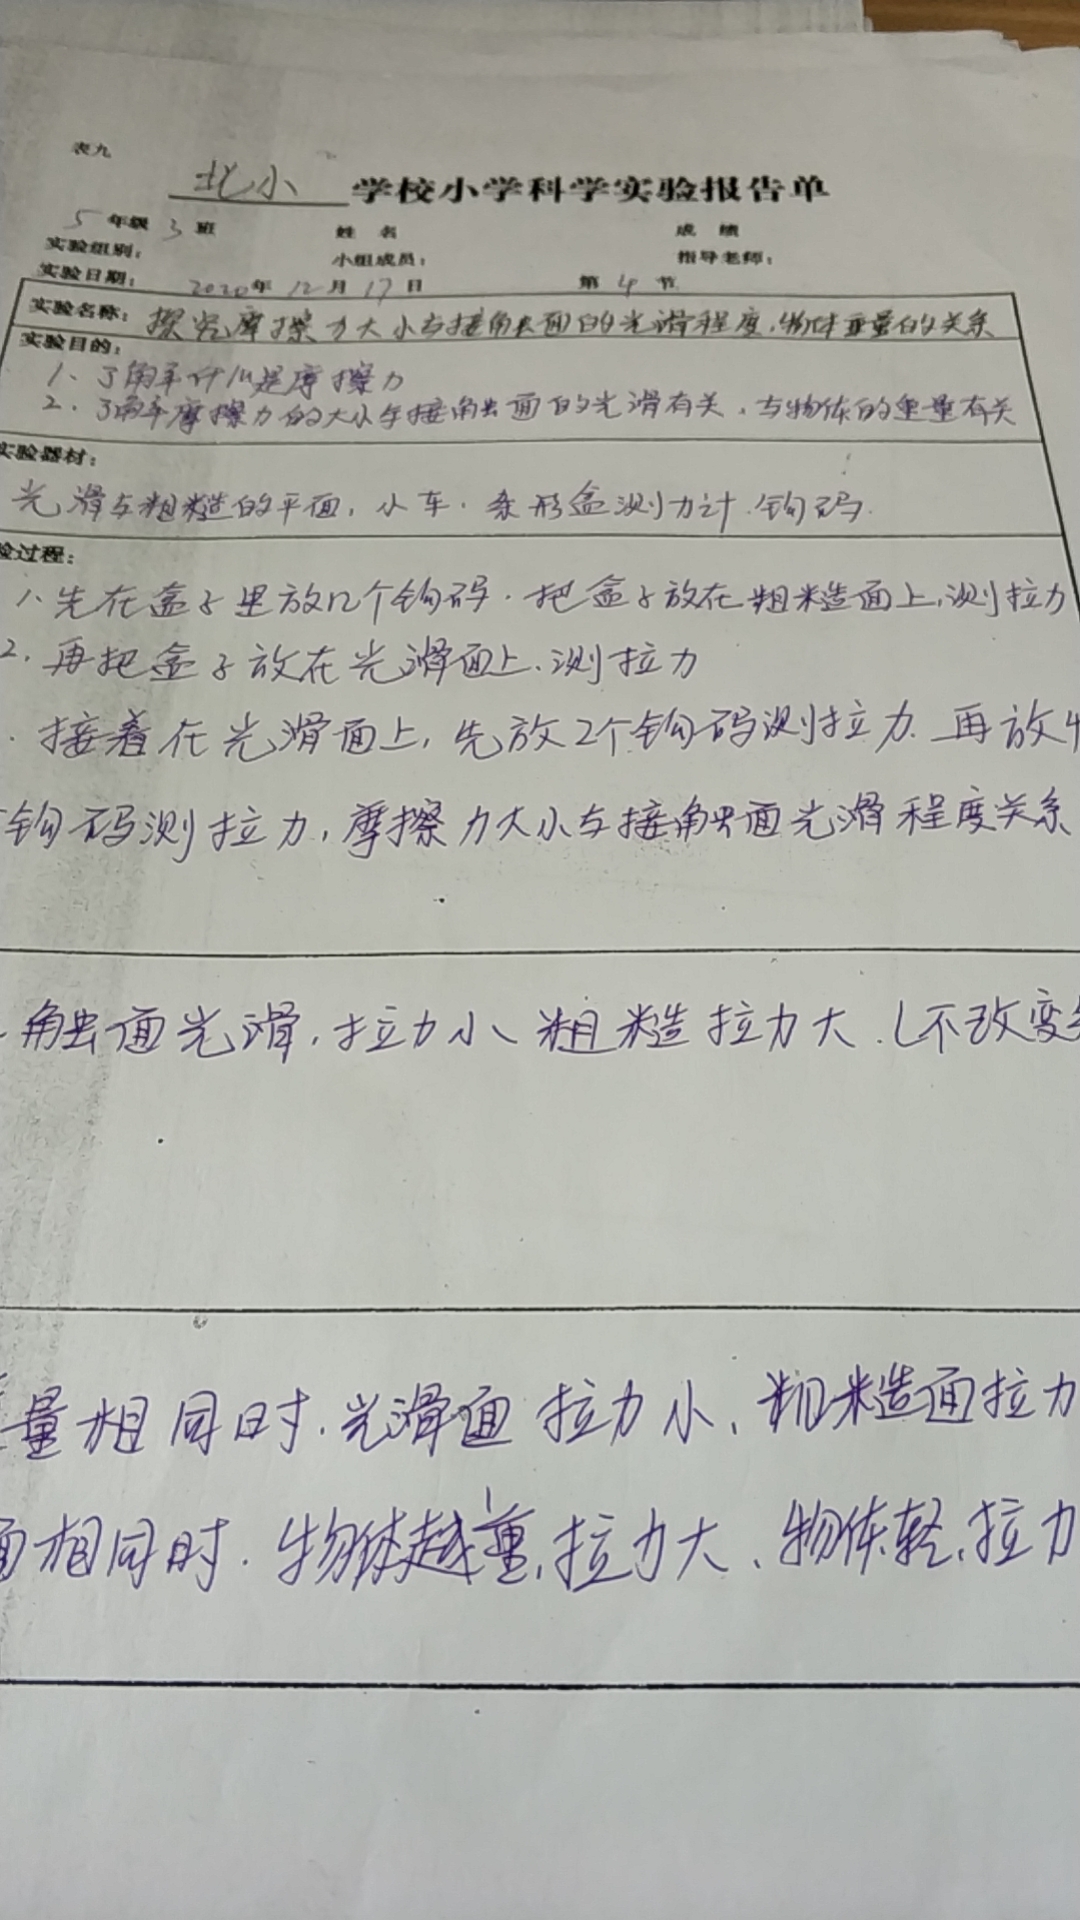 表九
北小 学校小学科学实验报告单
5 年级 3 班 姓 名 成 绩
实验组别： 小组成员： 指导老师：
实验日期： 2020年 12月 17日 第 4 节
实验名称：探究摩擦力大小与接触面的光滑程度,物体重量的关系
实验目的：
1、了解什么是摩擦力
2、了解摩擦力的大小与接触面的光滑有关、与物体的重量有关
实验器材：
光滑与粗糙的平面,小车.条形盒测力计.钩码.
验过程：
1、先在盒子里放几个钩码.把盒子放在粗糙面上,测拉力
2、再把盒子放在光滑面上、测拉力
接着在光滑面上,先放2个钩码测拉力.再放4
钩码测拉力,摩擦力大小与接触面光滑程度关系
触面光滑,拉力小、粗糙拉力大.(不改变
量相同时.光滑面拉力小、粗糙面拉力
面相同时.物体越重,拉力大、物体轻,拉力